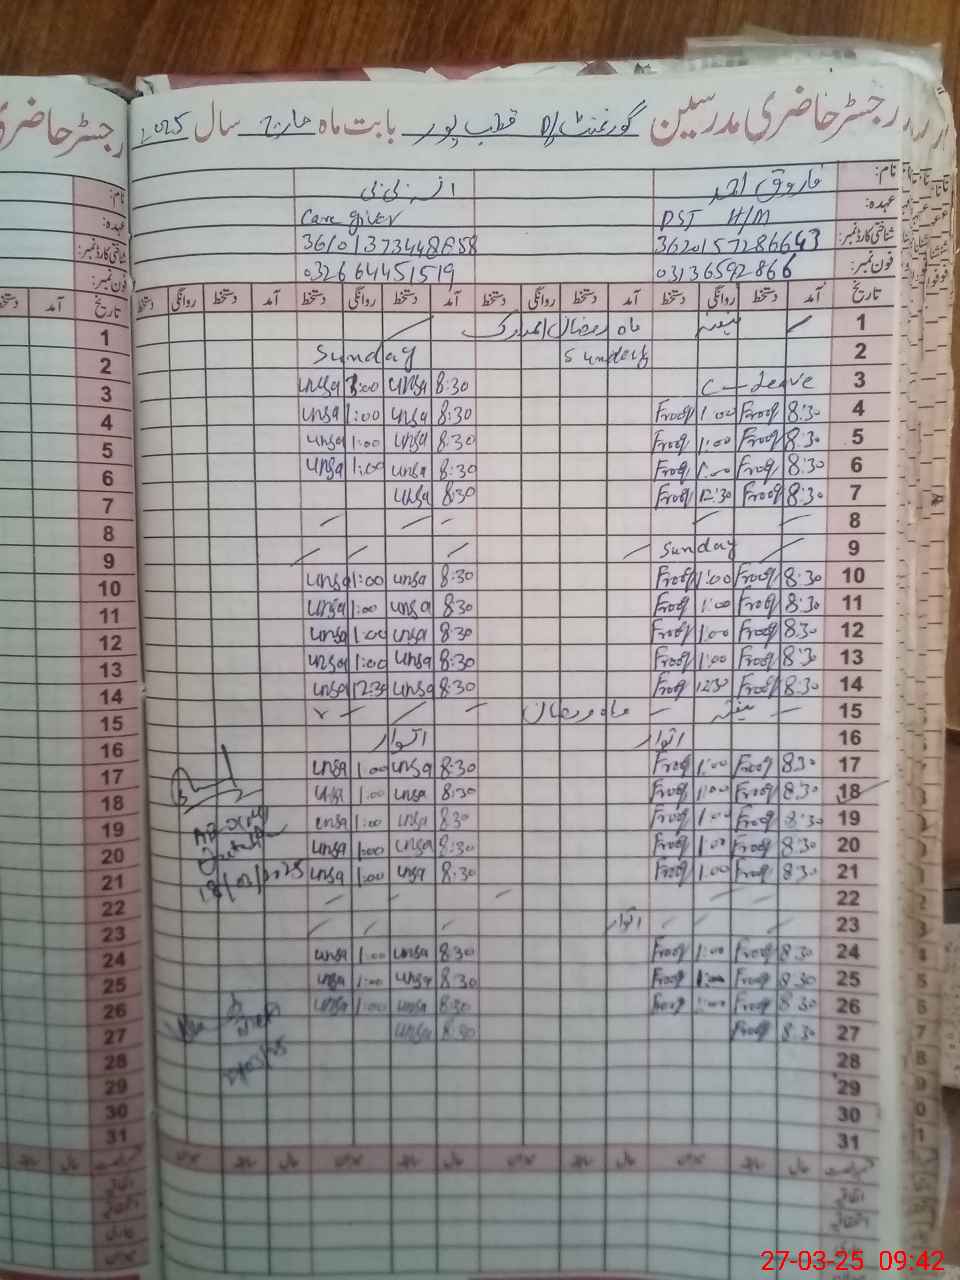 رجسٹر حاضری مدرسین گورنمنٹ P/S قطب پور بابت ماہ مارچ سال 2025
نام: فاروق احمد
عہدہ: PST H/M Care giver
شناختی کارڈ نمبر: 3620157286643
فون نمبر: 03136592866 032664451519
تاریخ آمد دستخط روانگی دستخط آمد دستخط روانگی دستخط آمد دستخط روانگی دستخط آمد دستخط روانگی دستخط
1 ہفتہ ماہ رمضان المبارک
2 Sunday Sunday
3 C-Leave 8:30 unsa 1:00 unsa
4 8:30 Frooq 1:00 Frooq 8:30 unsa 1:00 unsa
5 8:30 Frooq 1:00 Frooq 8:30 unsa 1:00 unsa
6 8:30 Frooq 1:00 Frooq 8:30 unsa 1:00 unsa
7 8:30 Frooq 12:30 Frooq 8:30 unsa
8
9 Sunday
10 8:30 Frooq 1:00 Frooq 8:30 unsa 1:00 unsa
11 8:30 Frooq 1:00 Frooq 8:30 unsa 1:00 unsa
12 8:30 Frooq 1:00 Frooq 8:30 unsa 1:00 unsa
13 8:30 Frooq 1:00 Frooq 8:30 unsa 1:00 unsa
14 8:30 Frooq 12:30 Frooq 8:30 unsa 12:30 unsa
15 ہفتہ ماہ رمضان
16 اتوار اتوار
17 8:30 Frooq 1:00 Frooq 8:30 unsa 1:00 unsa
18 8:30 Frooq 1:00 Frooq 8:30 unsa 1:00 unsa
19 8:30 Frooq 1:00 Frooq 8:30 unsa 1:00 unsa
20 8:30 Frooq 1:00 Frooq 8:30 unsa 1:00 unsa
21 8:30 Frooq 1:00 Frooq 8:30 unsa 1:00 unsa 18/03/2025
22
23 اتوار
24 8:30 Frooq 1:00 Frooq 8:30 unsa 1:00 unsa
25 8:30 Frooq 1:00 Frooq 8:30 unsa 1:00 unsa
26 8:30 Frooq 1:00 Frooq 8:30 unsa 1:00 unsa
27 8:30 Frooq 8:30 unsa
28
29
30
31
27-03-25 09:42